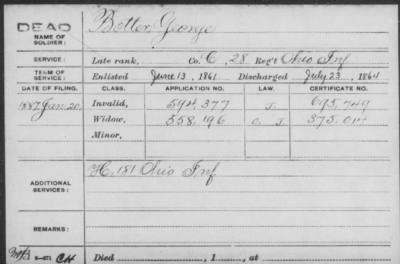 DEAD Botler, George
NAME OF
SOLDIER:
SERVICE: Late rank, Co. C, 28 Reg't Ohio Inf
TERM OF
SERVICE: Enlisted June 13, 1861 Discharged July 23, 1864
DATE OF FILING. CLASS. APPLICATION NO. LAW. CERTIFICATE NO.
1887 Jan. 20. Invalid, 594,377 J. 695,749
Widow, 558,196 O. J. 373,014
Minor,
ADDITIONAL
SERVICES: H, 181 Ohio Inf
REMARKS:
Died, 1, at